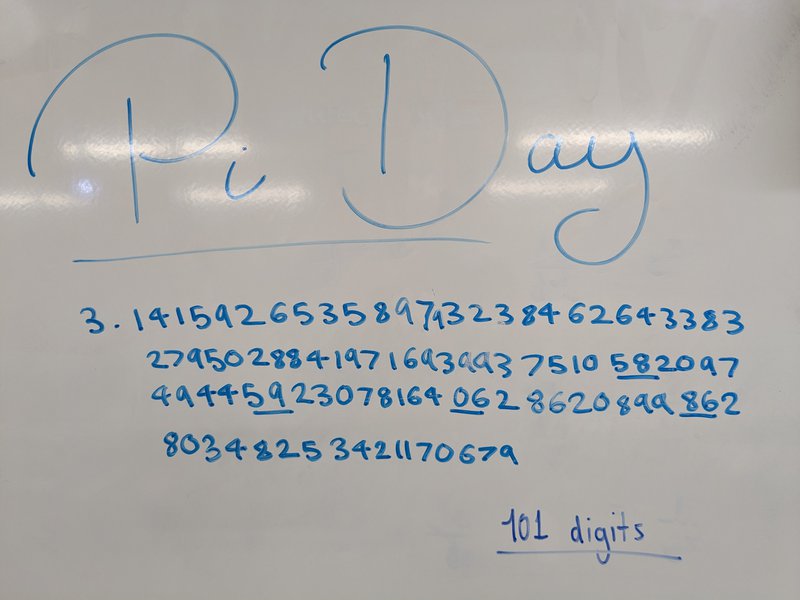 Pi Day
3.141592653589793238462643383
2795028841971693993 7510 582097
49445923078164 062 8620899 862
8034825 3421170679
101 digits